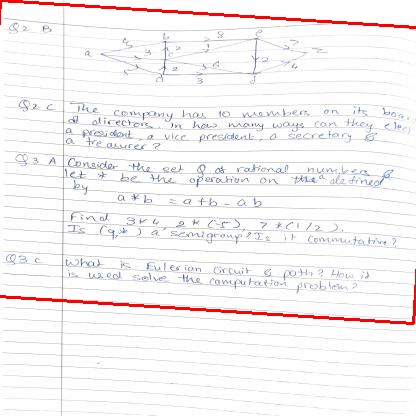 Q2 B
a b c d e z
3 5 2 8 1 6 3 2 7 4
Q2 C The company has 10 members on its boa
of directors. In how many ways can they elec
a president, a vice president, a secretary &
a treasurer?
Q3 A Consider the set Q of rational numbers &
let * be the operation on defined
by
a*b = a+b - ab
Find 3*4, 2*(-5), 7*(1/2).
Is (q,*) a semigroup? Is it commutative?
Q3 C What is Eulerian Circuit & path? How it
is used solve the computation problem?